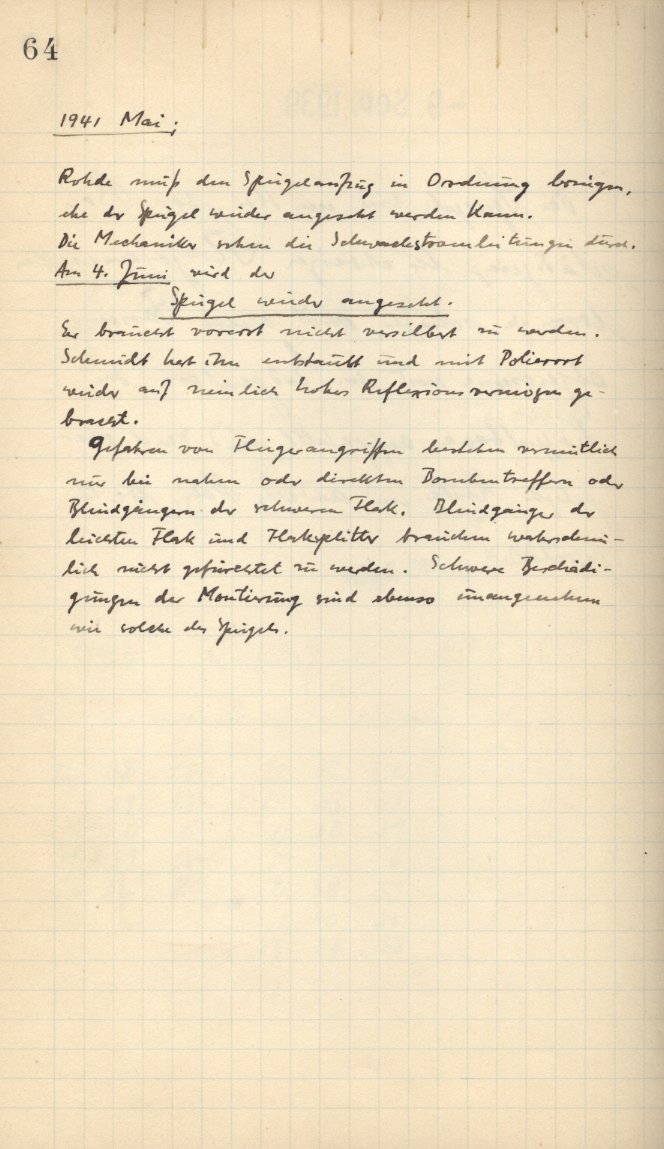 64
1941 Mai;
Rohde muß den Spiegelaufzug in Ordnung bringen,
ehe der Spiegel wieder angesetzt werden kann.
Die Mechaniker sehen die Schwachstromleitungen durch.
Am 4. Juni wird der
Spiegel wieder angesetzt.
Er braucht vorerst nicht versilbert zu werden.
Schmidt hat ihn entstaubt und mit Polierrot
wieder auf ziemlich hohes Reflexionsvermögen ge-
bracht.
Gefahren von Fliegerangriffen bestehen vermutlich
nur bei nahen oder direkten Bombentreffern oder
Blindgängern der schweren Flak. Blindgänger der
leichten Flak und Flaksplitter brauchen wahrschein-
lich nicht gefürchtet zu werden. Schwere Beschädi-
gungen der Montierung sind ebenso unangenehm
wie solche des Spiegels.